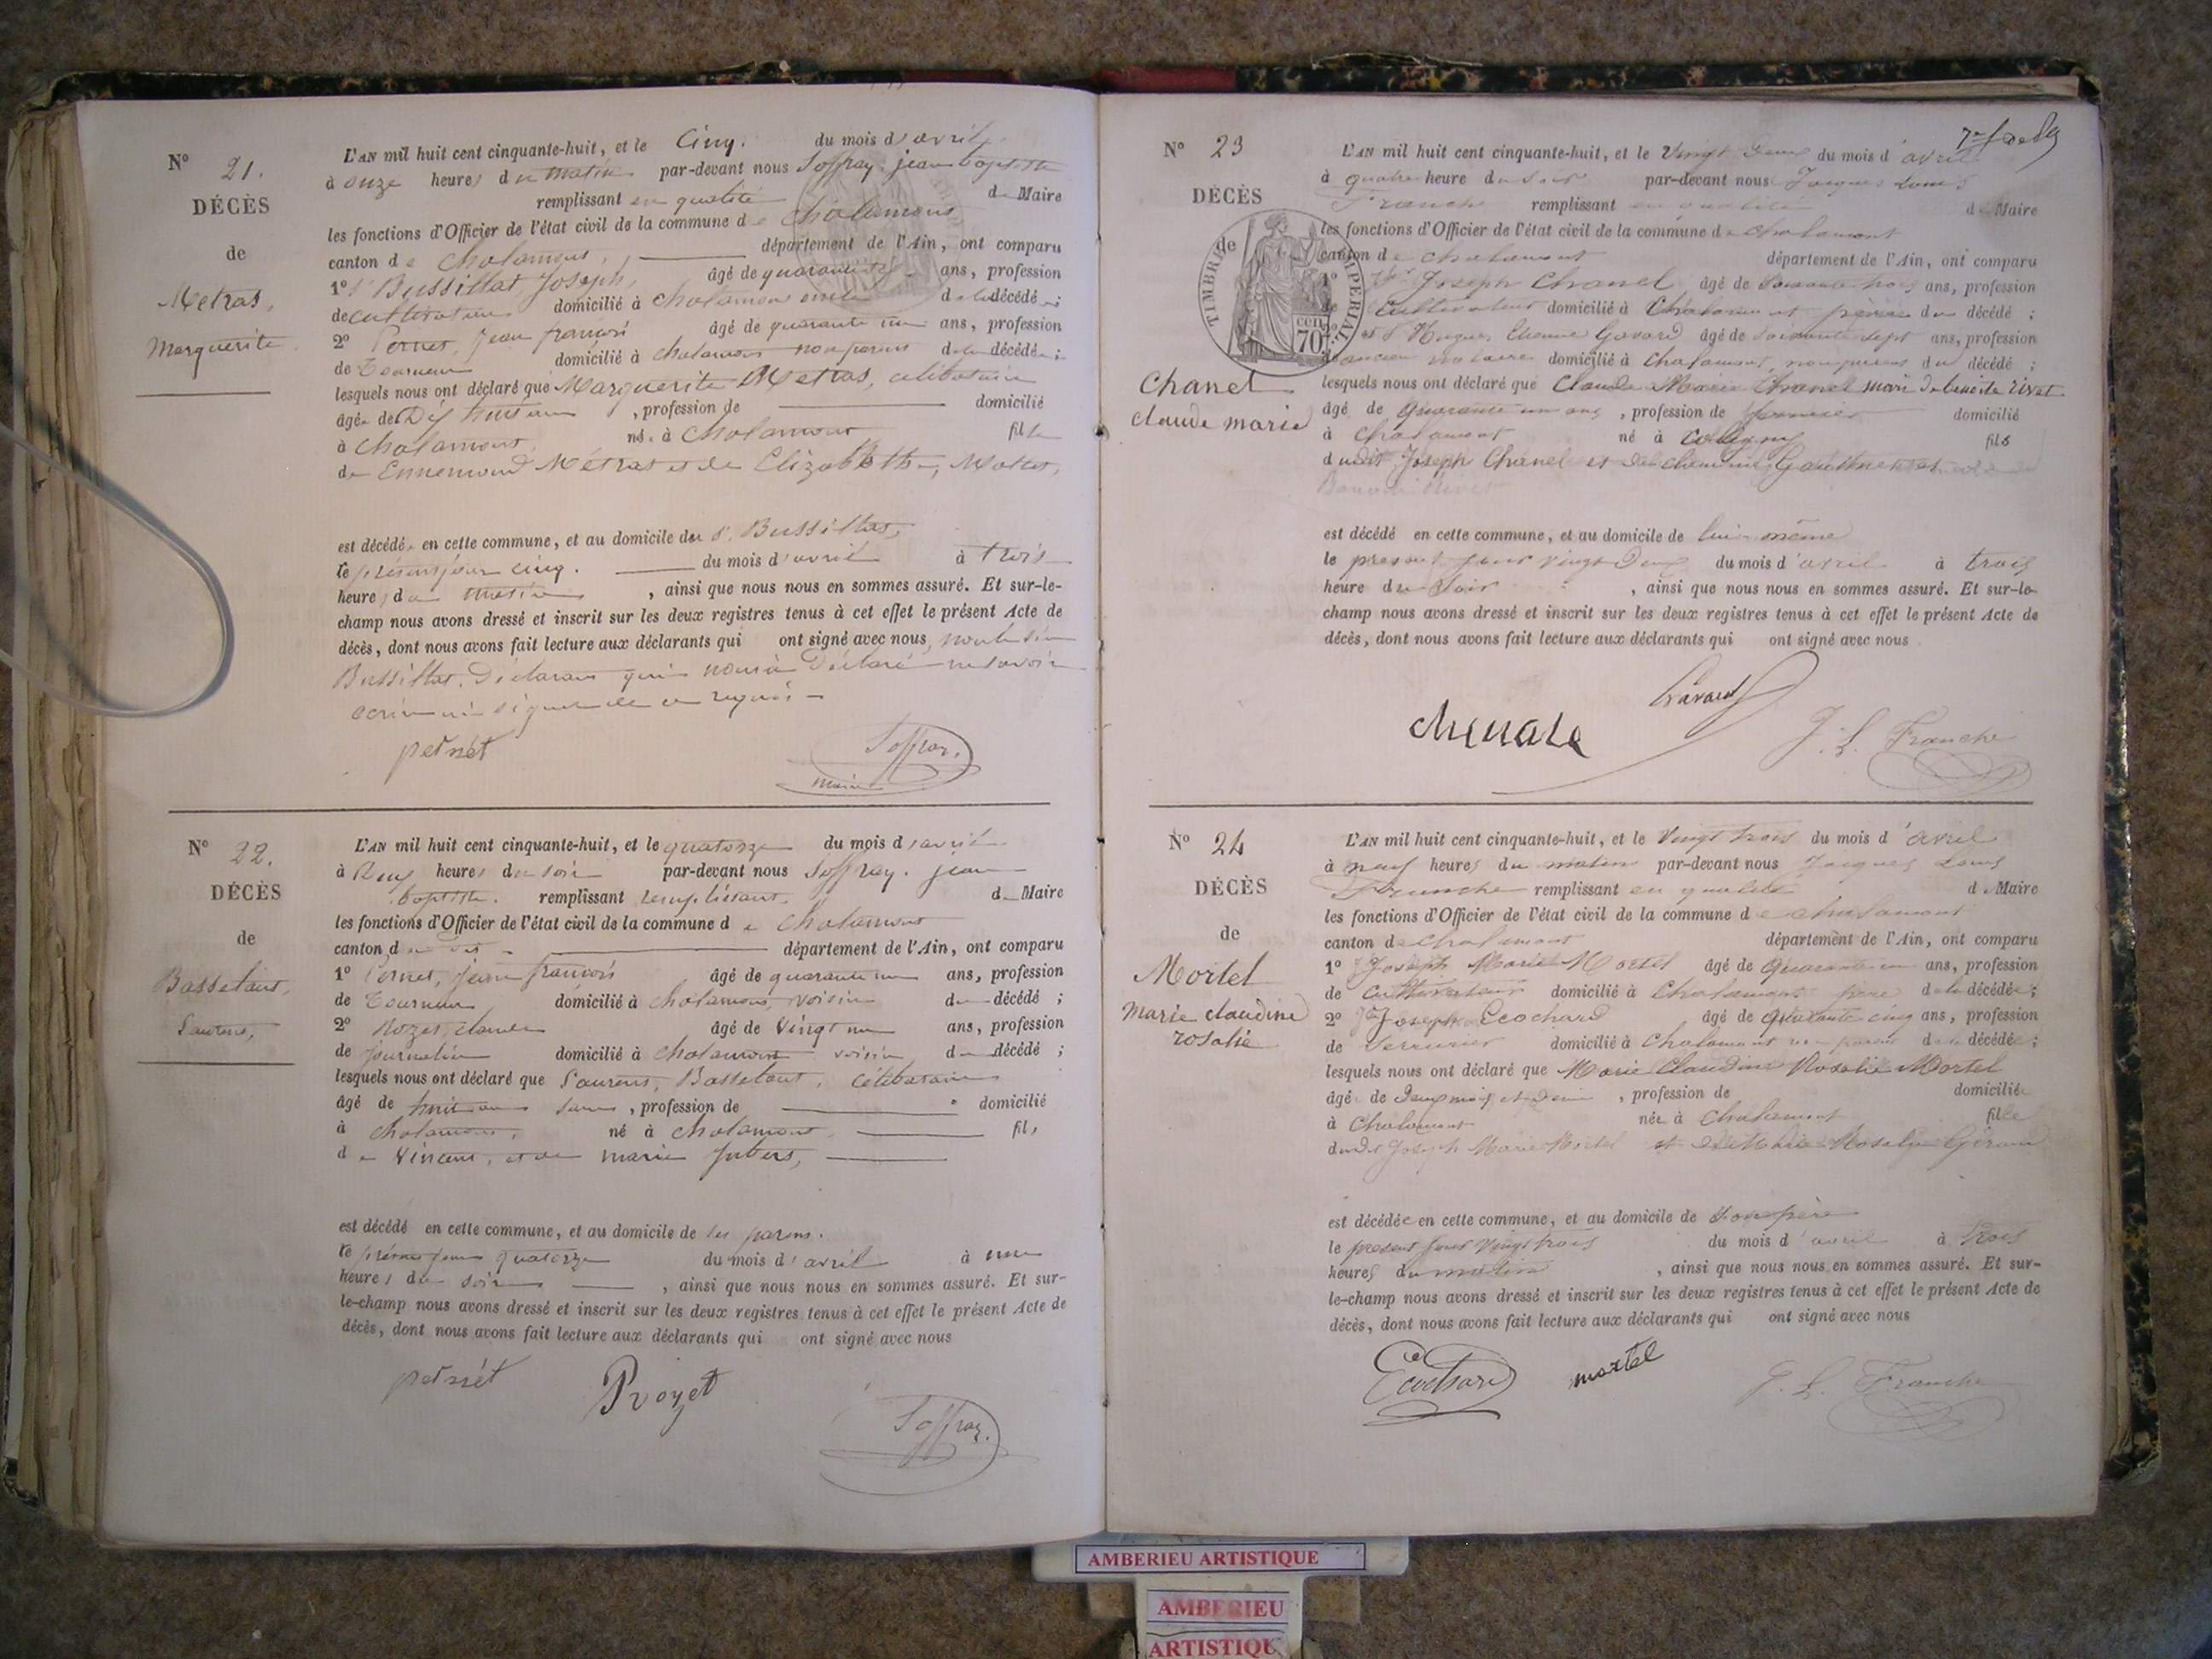 N° 21.
DÉCÈS
de
Metras,
Marguerite
L'AN mil huit cent cinquante-huit, et le Cinq. du mois d'avril,
à onze heures du matin par-devant nous Soffray, jean baptiste
remplissant en qualité de Maire
les fonctions d'Officier de l'état civil de la commune de Chalamont
canton de Chalamont, département de l'Ain, ont comparu
1° Bussillat Joseph, âgé de ans, profession
de cultivateur domicilié à Chalamont oncle de la décédée;
2° Pernet, Jean françois âgé de quarante un ans, profession
de Tourneur domicilié à Chalamont non parent de la décédée;
lesquels nous ont déclaré que Marguerite Metras, celibataire
âgée de Dix huit ans, profession de domicilié
à Chalamont née à Chalamont fille
de Ennemond Métras et de Elizabeth,
est décédée en cette commune, et au domicile du s. Bussillat,
le présent jour cinq. du mois d'avril à trois
heures du matin, ainsi que nous nous en sommes assuré. Et sur-le-
champ nous avons dressé et inscrit sur les deux registres tenus à cet effet le présent Acte de
décès, dont nous avons fait lecture aux déclarants qui ont signé avec nous, non le sieur
Bussillat. Déclarant qui nous a Déclaré ne savoir
écrire ni signer de ce requis
pernet Soffray.
maire
N° 22.
DÉCÈS
de
Bassetant,
Laurent,
L'AN mil huit cent cinquante-huit, et le quatorze du mois d'avril
à heures du soir par-devant nous Soffray. jean
baptiste. remplissant remplissant de Maire
les fonctions d'Officier de l'état civil de la commune de Chalamont
canton du dit département de l'Ain, ont comparu
1° Pernet, Jean françois âgé de quarante un ans, profession
de Tourneur domicilié à Chalamont voisin du décédé;
2° Rozet, claude âgé de Vingt un ans, profession
de journalier domicilié à Chalamont voisin du décédé;
lesquels nous ont déclaré que Laurent, Bassetant, célibataire
âgé de huit ans sans, profession de domicilié
à Chalamont, né à Chalamont fils
de Vincent, et de marie
est décédé en cette commune, et au domicile de ses parens.
le présent jour quatorze du mois d'avril à une
heures du soir, ainsi que nous nous en sommes assuré. Et sur-
le-champ nous avons dressé et inscrit sur les deux registres tenus à cet effet le présent Acte de
décès, dont nous avons fait lecture aux déclarants qui ont signé avec nous
pernet Rozet
Soffray.
N° 23
DÉCÈS
TIMBRE IMPERIAL
70 cen
Chanel
claude marie
L'AN mil huit cent cinquante-huit, et le Vingt Deux du mois d'avril
à quatre heure du soir par-devant nous Jacques Louis
Franche remplissant en qualité de Maire
les fonctions d'Officier de l'état civil de la commune de Chalamont
canton de Chalamont département de l'Ain, ont comparu
1° Joseph Chanel âgé de soixante trois ans, profession
de Cultivateur domicilié à Chalamont père du décédé;
et s. Hugues Etienne Gavard âgé de soixante sept ans, profession
d'ancien notaire domicilié à Chalamont, non parent du décédé;
lesquels nous ont déclaré que Claude Marie Chanel mari de benoite rivat
âgé de Quarante un ans, profession de fermier domicilié
à Chalamont né à Coligny fils
dudit Joseph Chanel et
est décédé en cette commune, et au domicile de lui-même
le présent jour vingt Deux du mois d'avril à trois
heure du soir, ainsi que nous nous en sommes assuré. Et sur-le-
champ nous avons dressé et inscrit sur les deux registres tenus à cet effet le présent Acte de
décès, dont nous avons fait lecture aux déclarants qui ont signé avec nous.
Gavard
J. L. Franche
N° 24
DÉCÈS
de
Mortel
marie claudine
rosalie
L'AN mil huit cent cinquante-huit, et le Vingt trois du mois d'avril
à neuf heures du matin par-devant nous Jacques Louis
Franche remplissant en qualité de Maire
les fonctions d'Officier de l'état civil de la commune de Chalamont
canton de Chalamont département de l'Ain, ont comparu
1° Joseph Marie Mortel âgé de Quarante un ans, profession
de cultivateur domicilié à Chalamont père de la décédée;
2° Joseph Ecochard âgé de Quarante cinq ans, profession
de serrurier domicilié à Chalamont non parent de la décédée;
lesquels nous ont déclaré que Marie Claudine Rosalie Mortel
âgée de Deux mois et Demi, profession de domiciliée
à Chalamont née à Chalamont fille
dudit Joseph Marie Mortel et de Marie
est décédée en cette commune, et au domicile de son père
le présent jour Vingt trois du mois d'avril à trois
heures du matin, ainsi que nous nous en sommes assuré. Et sur-
le-champ nous avons dressé et inscrit sur les deux registres tenus à cet effet le présent Acte de
décès, dont nous avons fait lecture aux déclarants qui ont signé avec nous
Ecochard mortel J. L. Franche
AMBERIEU ARTISTIQUE
AMBERIEU
ARTISTIQUE